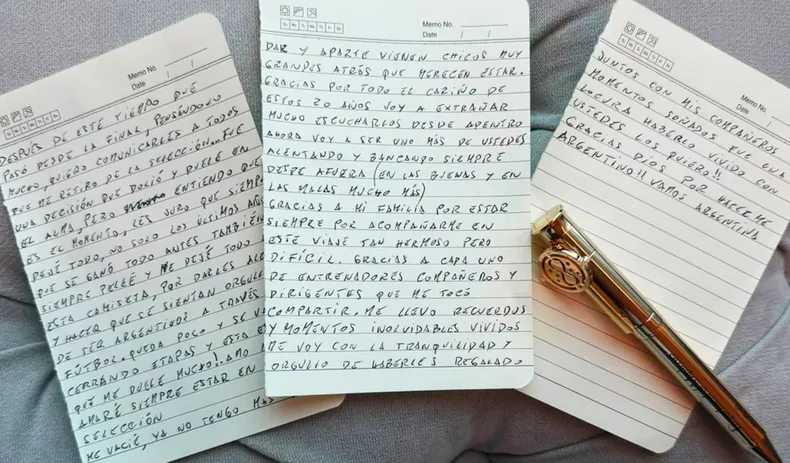 Memo No.
Date / /
DESPUÉS DE ESTE TIEMPO QUE
PASÓ DESDE LA FINAL, PENSÁNDOLO
MUCHO, QUIERO COMUNICARLES A TODOS
QUE ME RETIRO DE LA SELECCIÓN. FUE
UNA DECISIÓN QUE DOLIÓ Y DUELE EN
EL ALMA, PERO ENTIENDO QUE
ES EL MOMENTO, LES JURO QUE SIEMPRE
DEJÉ TODO, NO SOLO LOS ÚLTIMOS AÑOS
QUE SE GANÓ TODO ANTES TAMBIÉN
SIEMPRE PELEÉ Y ME DEJÉ TODO
ESTA CAMISETA, POR DARLES
Y HACER QUE SE SIENTAN
DE SER ARGENTINOS A TRAVÉS
FÚTBOL. QUEDA POCO Y SE
CERRANDO ETAPAS Y ESTA
QUE ME DUELE MUCHO! AMO
AMARÉ SIEMPRE ESTAR EN
SELECCIÓN
ME VACIÉ, YA NO TENGO MÁS
Memo No.
Date / /
DAR Y APARTE VIENEN CHICOS MUY
GRANDES ATRÁS QUE MERECEN ESTAR.
GRACIAS POR TODO EL CARIÑO DE
ESTOS 20 AÑOS VOY A EXTRAÑAR
MUCHO ESCUCHARLOS DESDE ADENTRO
AHORA VOY A SER UNO MÁS DE USTEDES
ALENTANDO Y BANCANDO SIEMPRE
DESDE AFUERA (EN LAS BUENAS Y EN
LAS MALAS MUCHO MÁS)
GRACIAS A MI FAMILIA POR ESTAR
SIEMPRE POR ACOMPAÑARME EN
ESTE VIAJE TAN HERMOSO PERO
DIFÍCIL. GRACIAS A CADA UNO
DE ENTRENADORES COMPAÑEROS Y
DIRIGENTES QUE ME TOCÓ
COMPARTIR. ME LLEVO RECUERDOS
Y MOMENTOS INOLVIDABLES VIVIDOS
ME VOY CON LA TRANQUILIDAD Y
ORGULLO DE HABERLES REGALADO
Memo No.
Date / /
JUNTOS CON MIS COMPAÑEROS
MOMENTOS SOÑADOS FUE UNA
LOCURA HABERLO VIVIDO CON
USTEDES LOS QUIERO!!
GRACIAS DIOS POR HACERME
ARGENTINO!! VAMOS ARGENTINA